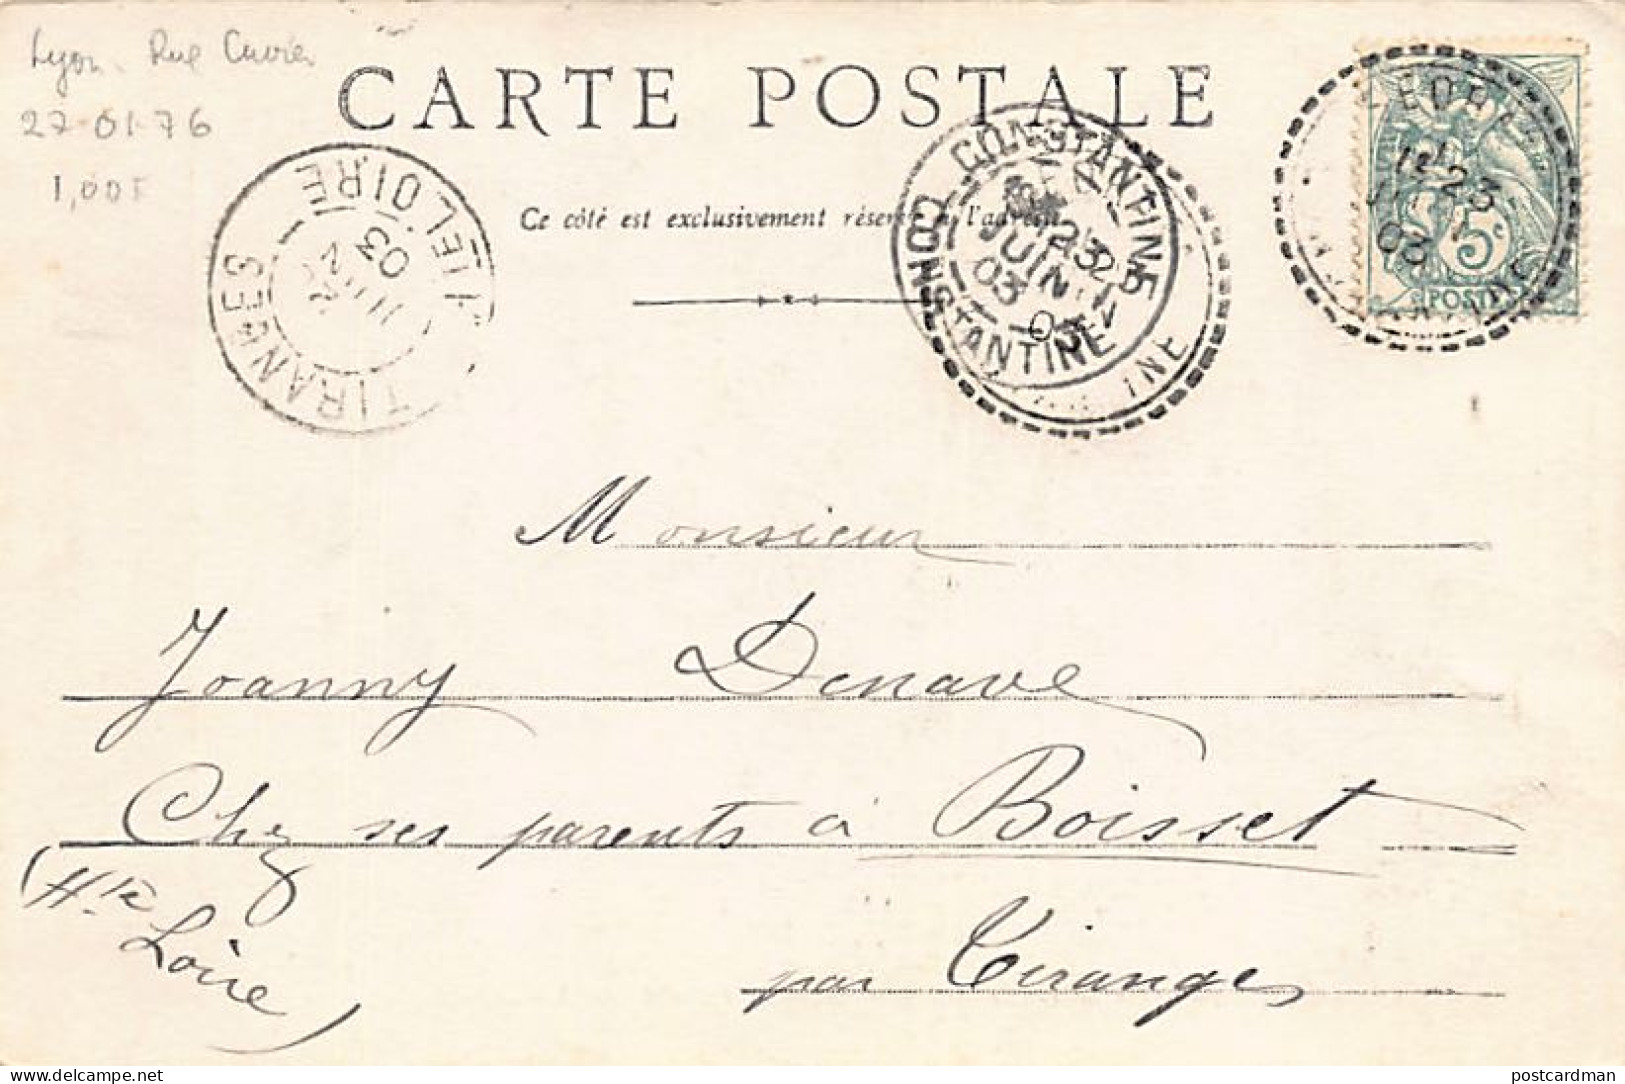 Lyon. Rue Cuvier
27-01-76
1,00F
CARTE POSTALE
Ce côté est exclusivement réservé à l'adresse
TIRANGES
HTE LOIRE
03
CONSTANTINE
CONSTANTINE
JUIN
03
23
5c
POSTES
Monsieur
Joanny Denave
Chez ses parents à Boisset
par Tiranges
(Hte
Loire)
delcampe.net
postcardman